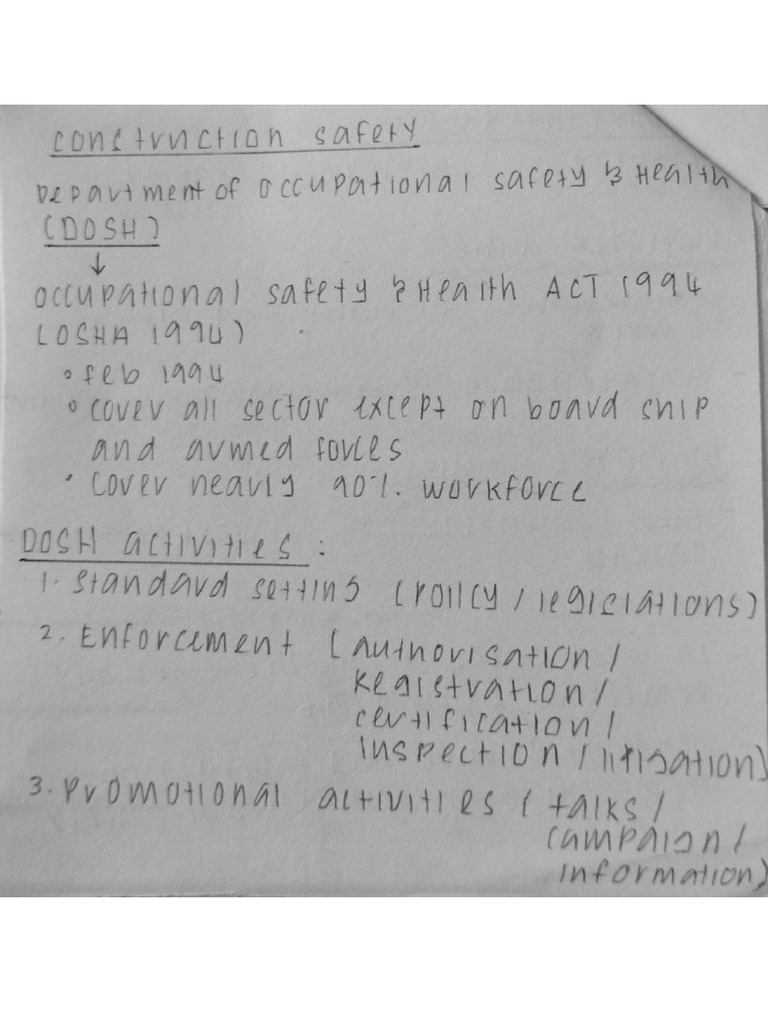 construction safety
Department of occupational safety & Health
(DOSH)
↓
occupational safety & Health ACT 1994
(OSHA 1994)
• feb 1994
• cover all sector except on board ship
and armed forces
• cover nearly 90%. workforce
DOSH activities :
1. standard setting (policy / legislations)
2. Enforcement (authorisation /
Registration /
certification /
inspection / litigation)
3. Promotional activities (talks /
campaign /
information)